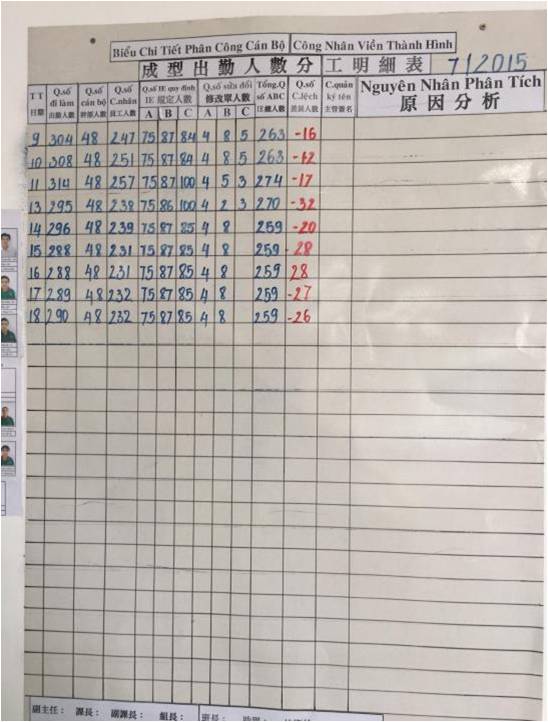 Biểu Chi Tiết Phân Công Cán Bộ Công Nhân Viên Thành Hình
成型出勤人數分工明細表 7/2015
TT Q.số Q.số Q.số Q.số IE quy định Q.số sửa đổi Tổng.Q Q.số C.quản Nguyên Nhân Phân Tích
đi làm cán bộ C.nhân IE 規定人數 修改單人數 số ABC C.lệch ký tên 原因分析
日期 出勤人數 幹部人數 員工人數 A B C A B C 主管簽名
9 304 48 247 75 87 84 4 8 5 263 -16
10 308 48 251 75 87 84 4 8 5 263 -12
11 314 48 257 75 87 100 4 5 3 274 -17
13 295 48 238 75 86 100 4 2 3 270 -32
14 296 48 239 75 87 85 4 8 259 -20
15 288 48 231 75 87 85 4 8 259 -28
16 288 48 231 75 87 85 4 8 259 28
17 289 48 232 75 87 85 4 8 259 -27
18 290 48 232 75 87 85 4 8 259 -26
副主任： 課長： 副課長： 組長： 班長：